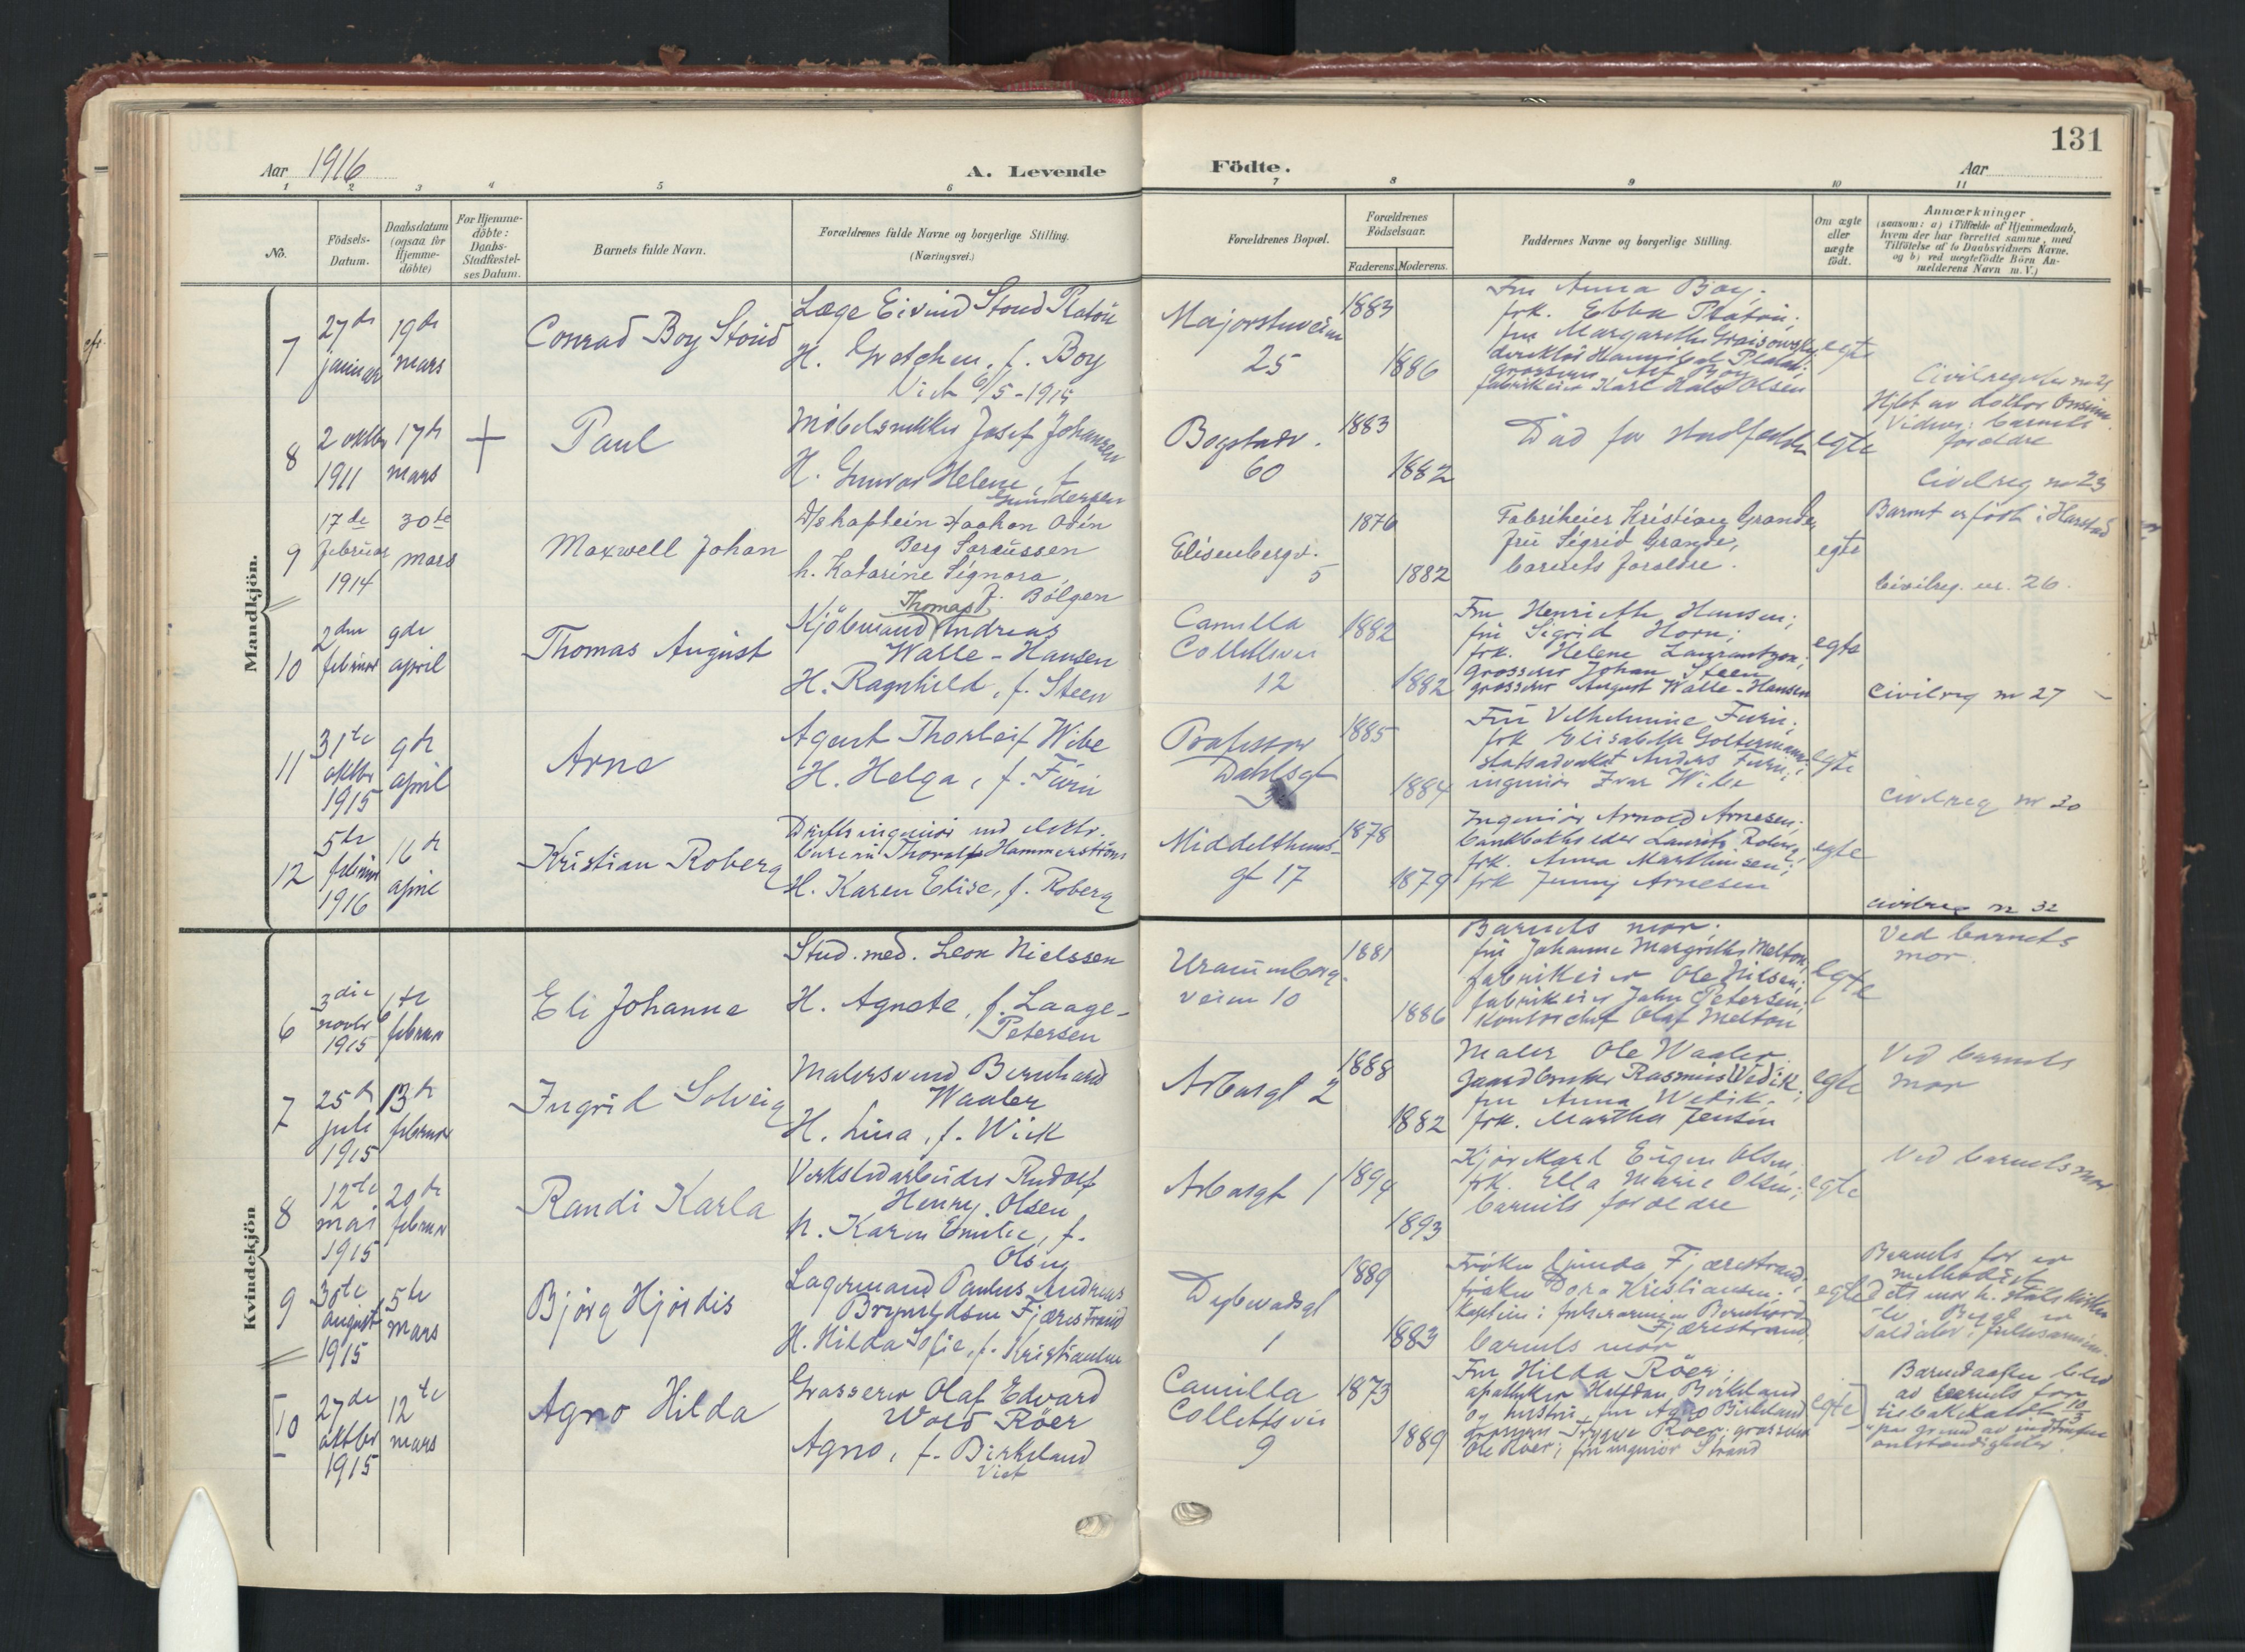 131
Aar 1916
A. Levende
Födte.
Aar
1 2 3 4 5 6 7 8 9 10 11
No.
Födsels-
Datum.
Daabsdatum
(ogsaa för
Hjemme-
döbte)
For Hjemme-
döbte:
Daabs-
Stadfæstel-
ses Datum.
Barnets fulde Navn.
Forældrenes fulde Navne og borgerlige Stilling.
(Næringsvei.)
Forældrenes Bopæl.
Forældrenes
Födselsaar.
Faderens. Moderens.
Faddernes Navne og borgerlige Stilling.
Om ægte
eller
uægte
födt.
Anmærkninger
(saasom: a) i Tilfælde af Hjemmedaab,
hvem der har forrettet samme, med
Tilföielse af to Daabsvidners Navne.
og b) ved uægtefödte Börn An-
melderens Navn m. V.)
Mandkjön.
7
27de
januar
19de
mars
Conrad Boy Stoud
Læge Eivind Stoud Platou
H. Gretchen, f. Boy
Viet 6/5-1915
Majorstuveien
25
1883
1886
Fru Anna Boy;
frk. Ebba Platou;
fru Margarethe
direktör Hannibal Platou;
grosserer Alf Boy
fabrikeier Karl Olsen
egte
Civilregister nr 21
8
2 oktbr
1911
17de
mars
+
Paul
Möbelsnekker Josef Johansen
H. Gunvor Helene, f.
Gundersen
Bogstadv.
60
1883
1882
Död for stadfestelsen
egte
Hjdöbt av doktor
Vidner: barnets
foreldre
Civilreg nr 23
9
17de
februar
1914
30te
mars
Maxwell Johan
D/s kaptein Haakon Odin
Berg Sörenssen
h. Katarine Signora,
f. Bølgen
Elisenbergv.
5
1876
1882
Fabrikeier Kristian Grande,
fru Sigrid Grande,
barnets foreldre.
egte
Barnet er födt i Harstad
Civilreg. nr. 26.
10
2den
februar
9de
april
Thomas August
Thomas
Kjöbmand Andreas
Walle-Hansen
H. Ragnhild, f. Steen
Camilla
Collettsvei
12
1882
1882
Fru Henriette Hansen;
fru Sigrid Horn;
frk. Helene Laurantzon;
grosserer Johan Steen
grosserer August Walle-Hansen
egte
Civilreg nr 27
11
31te
oktbr
1915
9de
april
Arne
Agent Thorleif Wibe
H. Helga, f. Furu
Professor
Dahlsgt
1885
1884
Fru Vilhelmine Furu;
frk Elisabeth Goltermann;
statsadvokat Anders Furu;
ingeniör Ivar Wibe
egte
Civilreg nr 30
12
5te
februar
1916
16de
april
Kristian Roberg
Driftsingeniör ved elektr.
Thoralf Hammerström
H. Karen Elise, f. Roberg
Middelthuns-
gt 17
1878
1879
Ingeniör Arnold Arnesen;
Lauritz Roberg;
frk. Anna Marthinsen;
frk Jenny Arnesen
egte
Civilreg nr 32
Kvindekjön
6
3die
novbr
1915
6te
februar
Eli Johanne
Stud. med. Leon Nielssen
H. Agnete, f. Laage-
Petersen
Uranienborg-
veien 10
1881
1886
Barnets mor;
fru Johanne Margrethe Melton;
fabrikeier Ole Nilsen;
fabrikeier John Petersen;
kontorchef Olaf Melton
egte
Ved barnets
mor.
7
25de
juli
1915
13de
februar
Ingrid Solveig
Malersvend Bernhard
Waaler
H. Lina, f. Wiik
Arbosgt 2
1888
1882
Maler Ole Waaler;
gaardbruker Rasmus Wedik;
fru Anna Wedik;
frk. Martha Jensen
egte
Ved barnets
mor
8
12te
mai
1915
20de
februar
Randi Karla
Verkstedarbeider Rudolf
Henry Olsen
H. Karen Emilie, f.
Olsen
Arbosgt 1
1894
1893
Eugen Olsen,
frk. Ella Marie Olsen;
barnets foreldre
egte
Ved barnets mor
9
30te
august
1915
5te
mars
Bjørg Hjördis
Lagermand Paulus Andreas
Brynildsen Fjærestrand
H. Hilda Sofie, f. Kristiansen
Dybwadsgt
1
1889
1883
Fröken Gunda Fjærestrand;
fröken Dora Kristiansen;
kaptein i frelsesarmeen Bernhard
Fjærestrand,
barnets mor
egte
Barnets far er
methodist
dets mor h. statskirken
til. Begge er
soldater i frelsesarmeen.
10
27de
oktbr
1915
12te
mars
Agno Hilda
Grosserer Olaf Edvard
Wold Röer
Agno, f. Birkeland
Viet
Camilla
Collettsvei
9
1873
1889
Fru Hilda Röer;
apotheker Halfdan Birkeland
og hustru fru Agno Birkeland
grosserer Trygve Roer; grosserer
Ole Roer; fru ingeniör Strand
egte
Barnedaaben blev
av barnets far
tilbakekaldt 10/3
paa grund av indtrufne
omstendigheter.